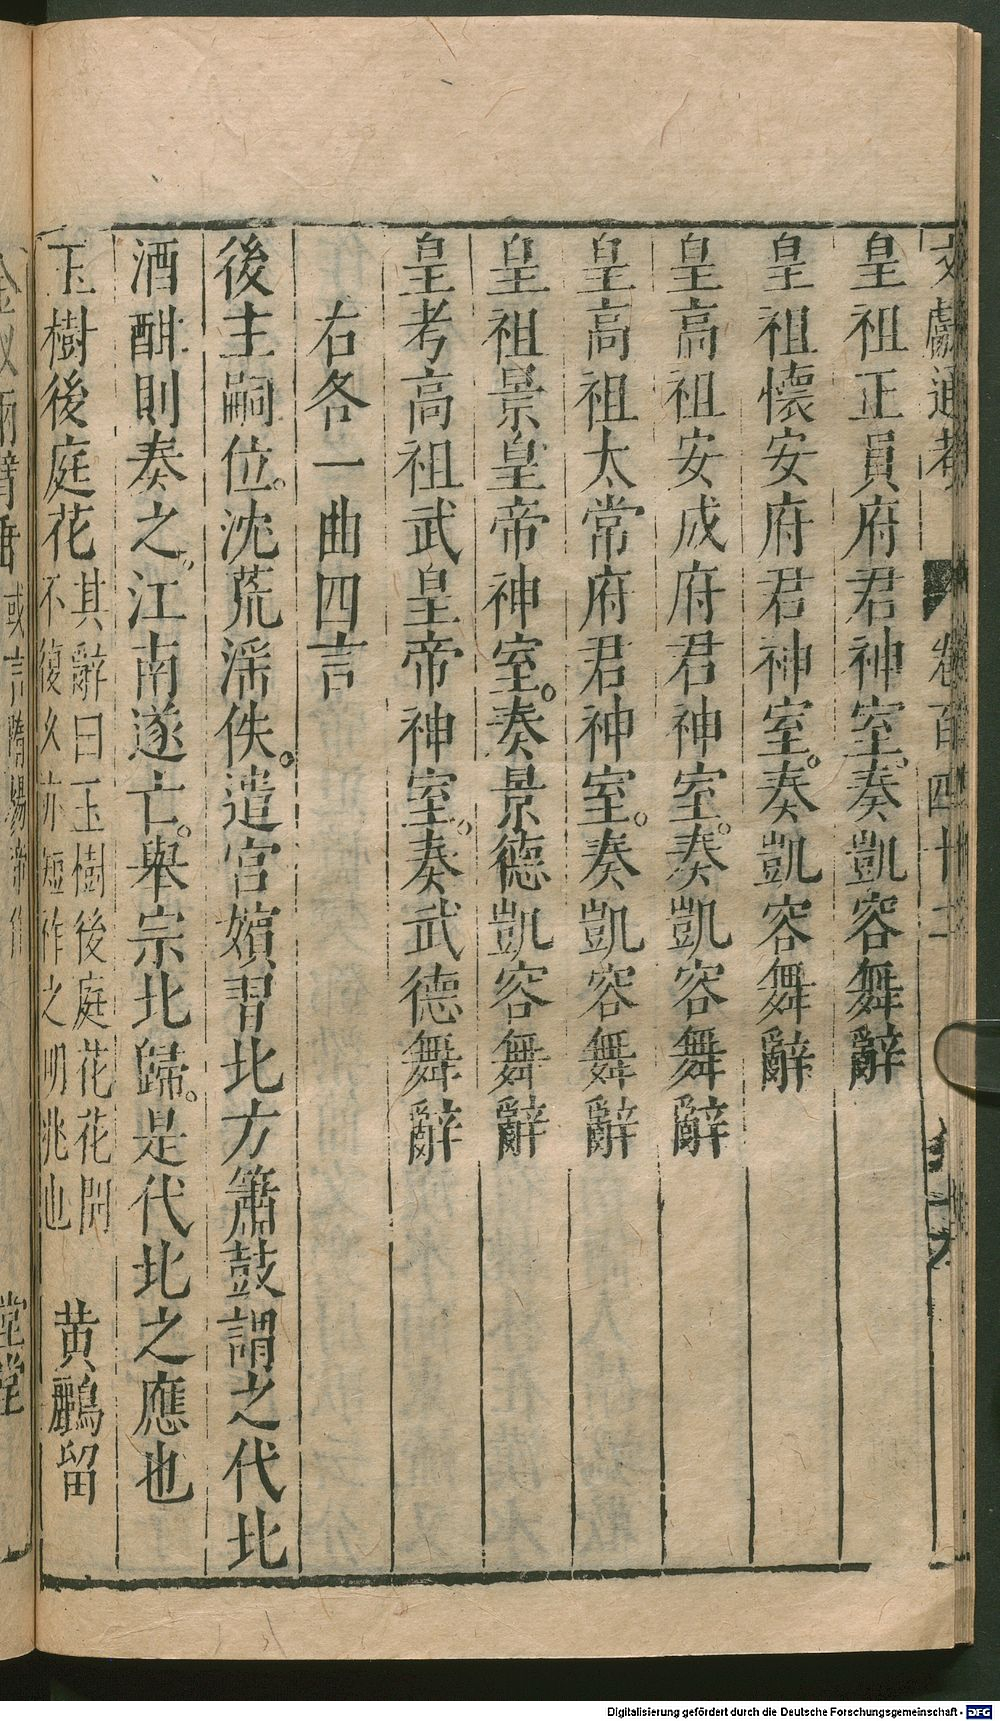 文獻通考 卷百四十二
皇祖正員府君神室。奏凱容舞辭
皇祖懷安府君神室。奏凱容舞辭
皇高祖安成府君神室。奏凱容舞辭
皇高祖太常府君神室。奏凱容舞辭
皇祖景皇帝神室。奏景德凱容舞辭
皇考高祖武皇帝神室。奏武德舞辭
右各一曲四言
後主嗣位。沈荒淫佚。遣宮嬪習北方簫鼓謂之代北
酒酣則奏之。江南遂亡。舉宗北歸。是代北之應也
玉樹後庭花 其辭曰玉樹後庭花花開
不復久亦短祚之明兆也 黄鸝留
金釵兩臂垂 或言隋煬帝作 堂堂
Digitalisierung gefördert durch die Deutsche Forschungsgemeinschaft - DFG